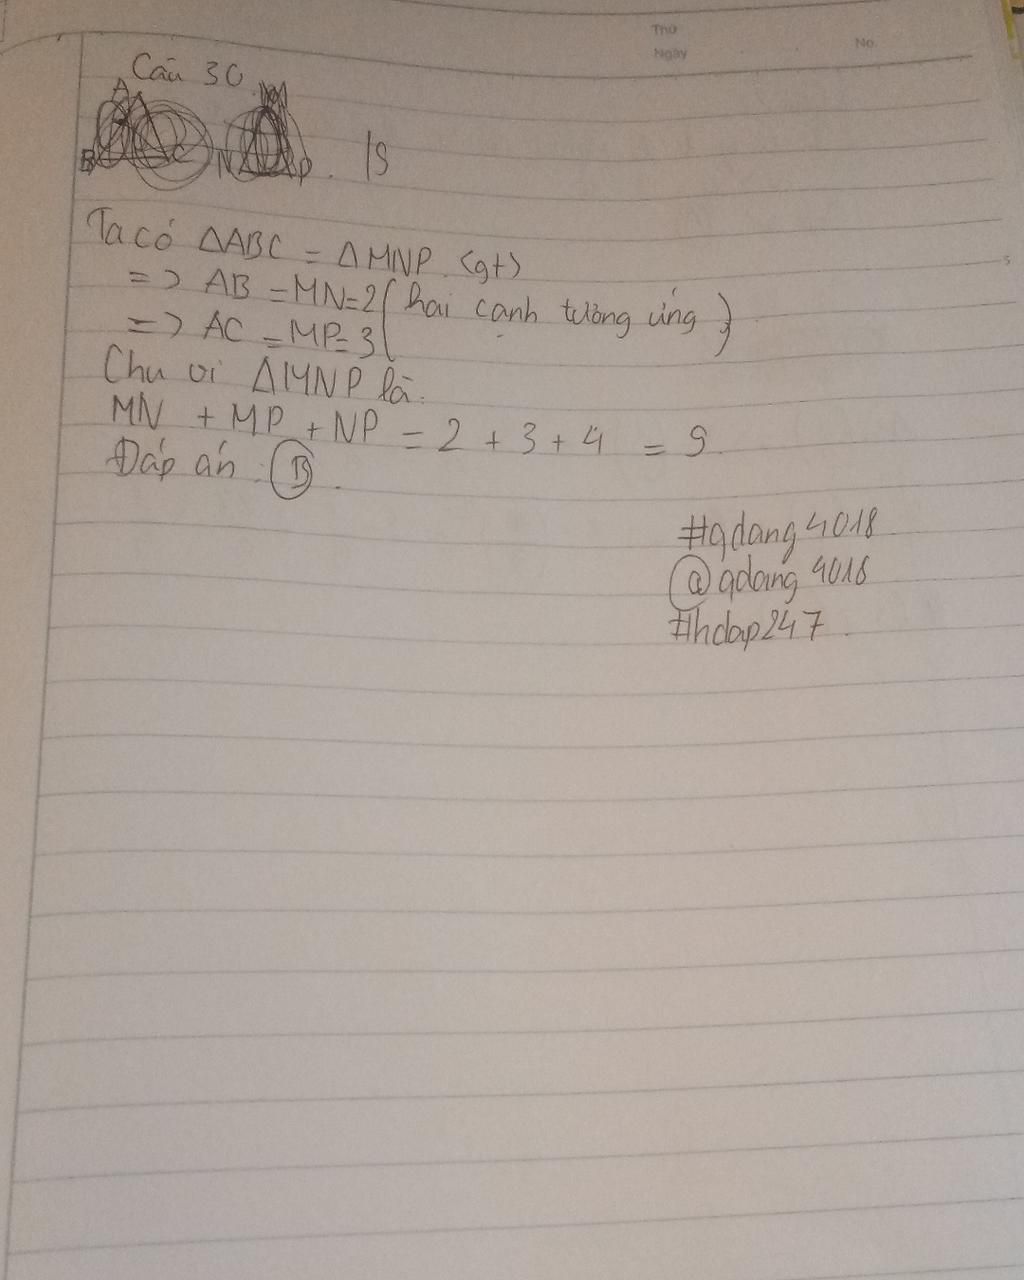 Thứ
Ngày
No.
Câu 30
A M
B C N P
Ta có ΔABC = ΔMNP (gt)
=> AB = MN = 2 (hai cạnh tương ứng)
=> AC = MP = 3
Chu vi ΔMNP là:
MN + MP + NP = 2 + 3 + 4 = 9
Đáp án: B.
#qdang4018
@qdang4018
#hdap247